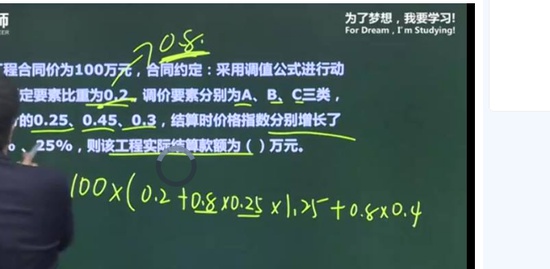 师
EER
为了梦想，我要学习!
For Dream, I'm Studying!
0.8.
程合同价为100万元，合同约定：采用调值公式进行动
定要素比重为0.2，调价要素分别为A、B、C三类，
的0.25、0.45、0.3，结算时价格指数分别增长了
、25%，则该工程实际结算款额为（）万元。
100×(0.2+0.8×0.25×1.25+0.8×0.4